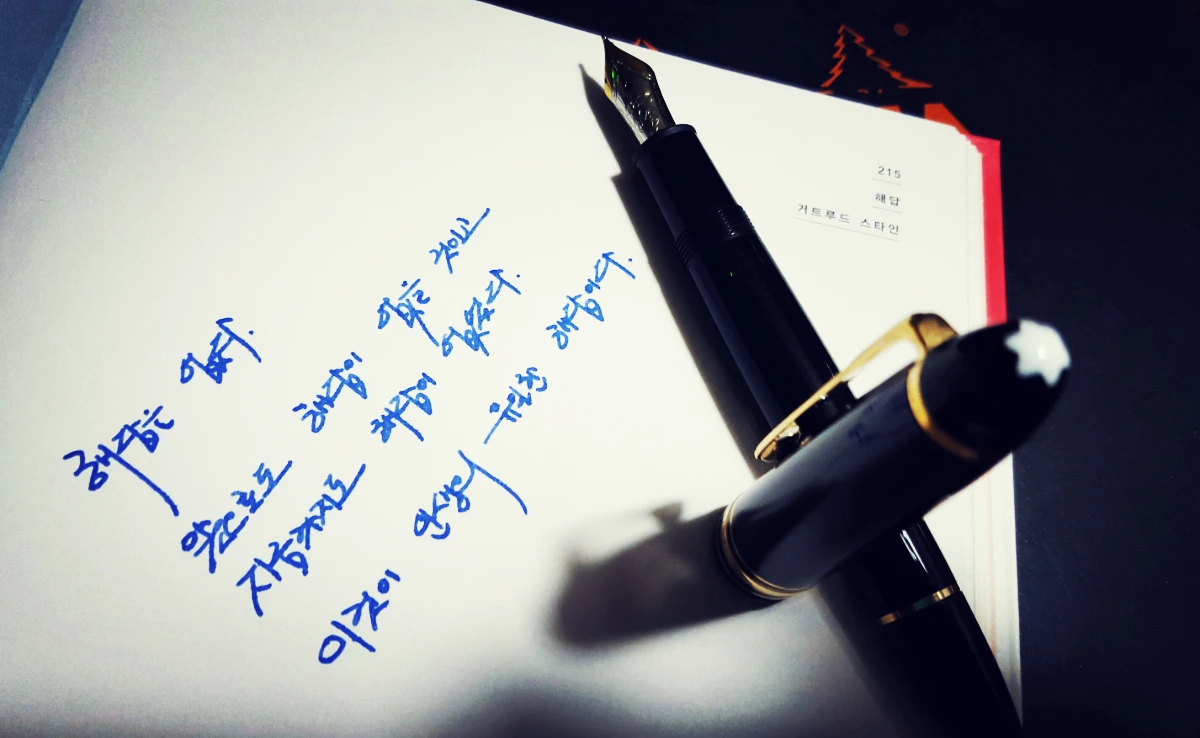 215
해답
거트루드 스타인
해답은 없다.
앞으로도 해답이 없을 것이고
지금까지도 해답이 없었다.
이것이 인생의 유일한 해답이다.